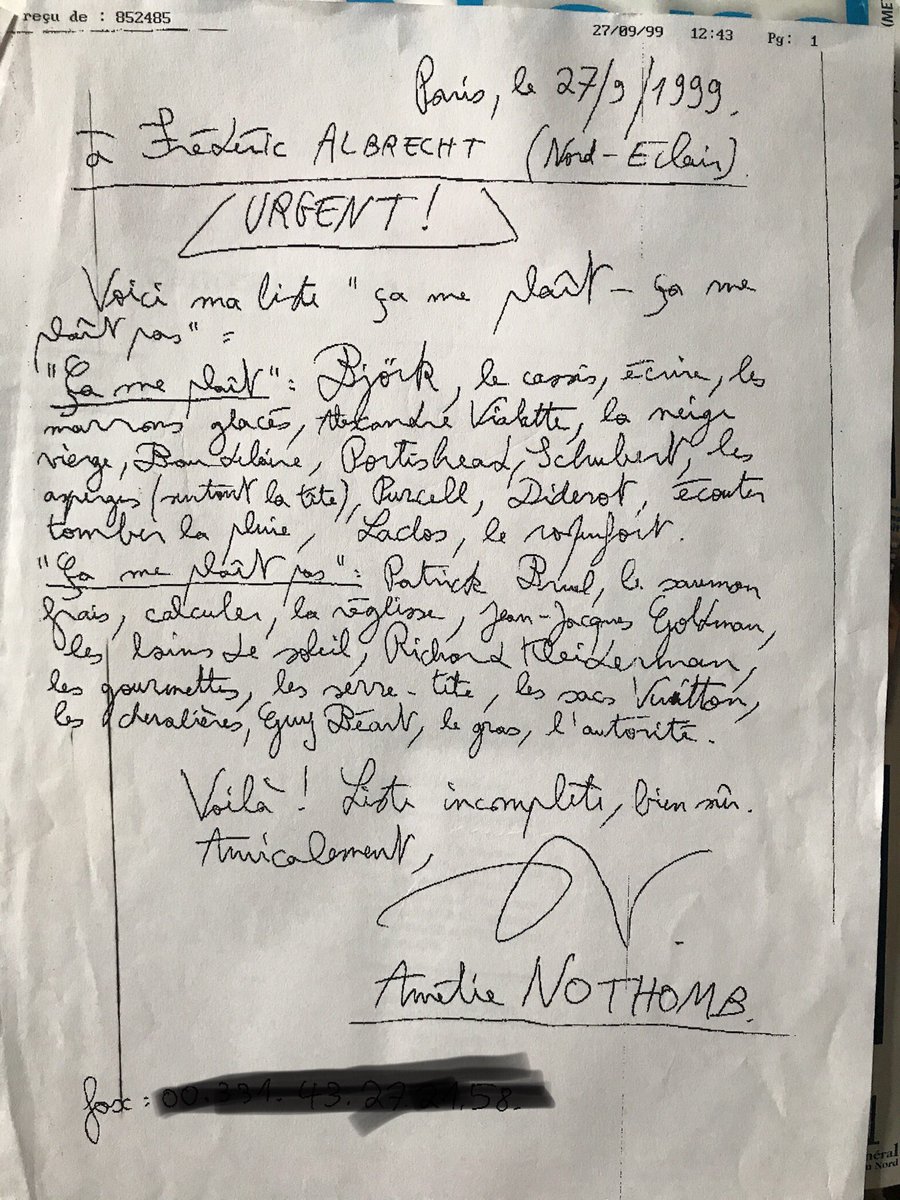 reçu de : 852485 27/09/99 12:43 Pg: 1
Paris, le 27/9/1999.
à Frédéric ALBRECHT (Nord-Eclair)
URGENT!
Voici ma liste "ça me plaît - ça me
plaît pas" :
"Ça me plaît": Björk, le cassis, écrire, les
marrons glacés, Alexandre Vialatte, la neige
vierge, Baudelaire, Portishead, Schubert, les
asperges (surtout la tête), Purcell, Diderot, écouter
tomber la pluie, Laclos, le roquefort.
"Ça me plaît pas": Patrick Bruel, le saumon
frais, calculer, la réglisse, Jean-Jacques Goldman,
les bains de soleil, Richard Kleiderman,
les gourmettes, les serre-tête, les sacs Vuitton,
les chevalières, Guy Béart, le gras, l'autorité.
Voilà ! Liste incomplète, bien sûr.
Amicalement,
Amélie NOTHOMB.
fax :
néral
Nord